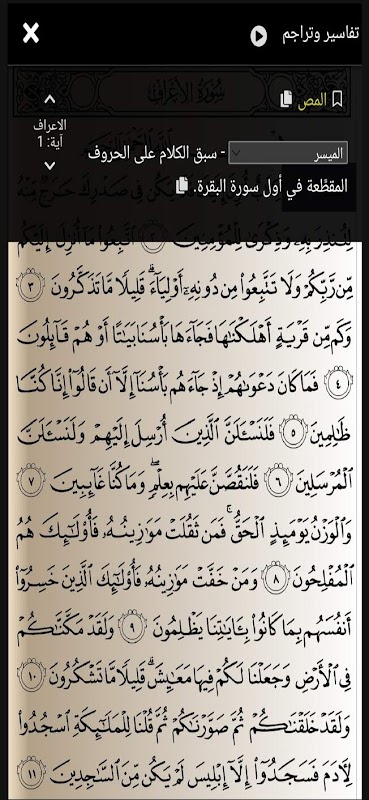 تفاسير وتراجم
سُورَةُ الأَعْرَافِ
المص
الاعراف
آية: 1
الميسر - سبق الكلام على الحروف
المقطَّعة في أول سورة البقرة.
يَكُن فِي صَدْرِكَ حَرَجٌ مِّنْهُ
لِتُنذِرَ بِهِۦ وَذِكْرَىٰ لِلْمُؤْمِنِينَ ٢ ٱتَّبِعُوا۟ مَآ أُنزِلَ إِلَيْكُم
مِّن رَّبِّكُمْ وَلَا تَتَّبِعُوا۟ مِن دُونِهِۦٓ أَوْلِيَآءَ ۗ قَلِيلًا مَّا تَذَكَّرُونَ ٣
وَكَم مِّن قَرْيَةٍ أَهْلَكْنَٰهَا فَجَآءَهَا بَأْسُنَا بَيَٰتًا أَوْ هُمْ قَآئِلُونَ
٤ فَمَا كَانَ دَعْوَىٰهُمْ إِذْ جَآءَهُم بَأْسُنَآ إِلَّآ أَن قَالُوٓا۟ إِنَّا كُنَّا
ظَٰلِمِينَ ٥ فَلَنَسْـَٔلَنَّ ٱلَّذِينَ أُرْسِلَ إِلَيْهِمْ وَلَنَسْـَٔلَنَّ
ٱلْمُرْسَلِينَ ٦ فَلَنَقُصَّنَّ عَلَيْهِم بِعِلْمٍ ۖ وَمَا كُنَّا غَآئِبِينَ ٧
وَٱلْوَزْنُ يَوْمَئِذٍ ٱلْحَقُّ ۚ فَمَن ثَقُلَتْ مَوَٰزِينُهُۥ فَأُو۟لَٰٓئِكَ هُمُ
ٱلْمُفْلِحُونَ ٨ وَمَنْ خَفَّتْ مَوَٰزِينُهُۥ فَأُو۟لَٰٓئِكَ ٱلَّذِينَ خَسِرُوٓا۟
أَنفُسَهُم بِمَا كَانُوا۟ بِـَٔايَٰتِنَا يَظْلِمُونَ ٩ وَلَقَدْ مَكَّنَّٰكُمْ
فِى ٱلْأَرْضِ وَجَعَلْنَا لَكُمْ فِيهَا مَعَٰيِشَ ۗ قَلِيلًا مَّا تَشْكُرُونَ ١٠
وَلَقَدْ خَلَقْنَٰكُمْ ثُمَّ صَوَّرْنَٰكُمْ ثُمَّ قُلْنَا لِلْمَلَٰٓئِكَةِ ٱسْجُدُوا۟
لِـَٔادَمَ فَسَجَدُوٓا۟ إِلَّآ إِبْلِيسَ لَمْ يَكُن مِّنَ ٱلسَّٰجِدِينَ ١١